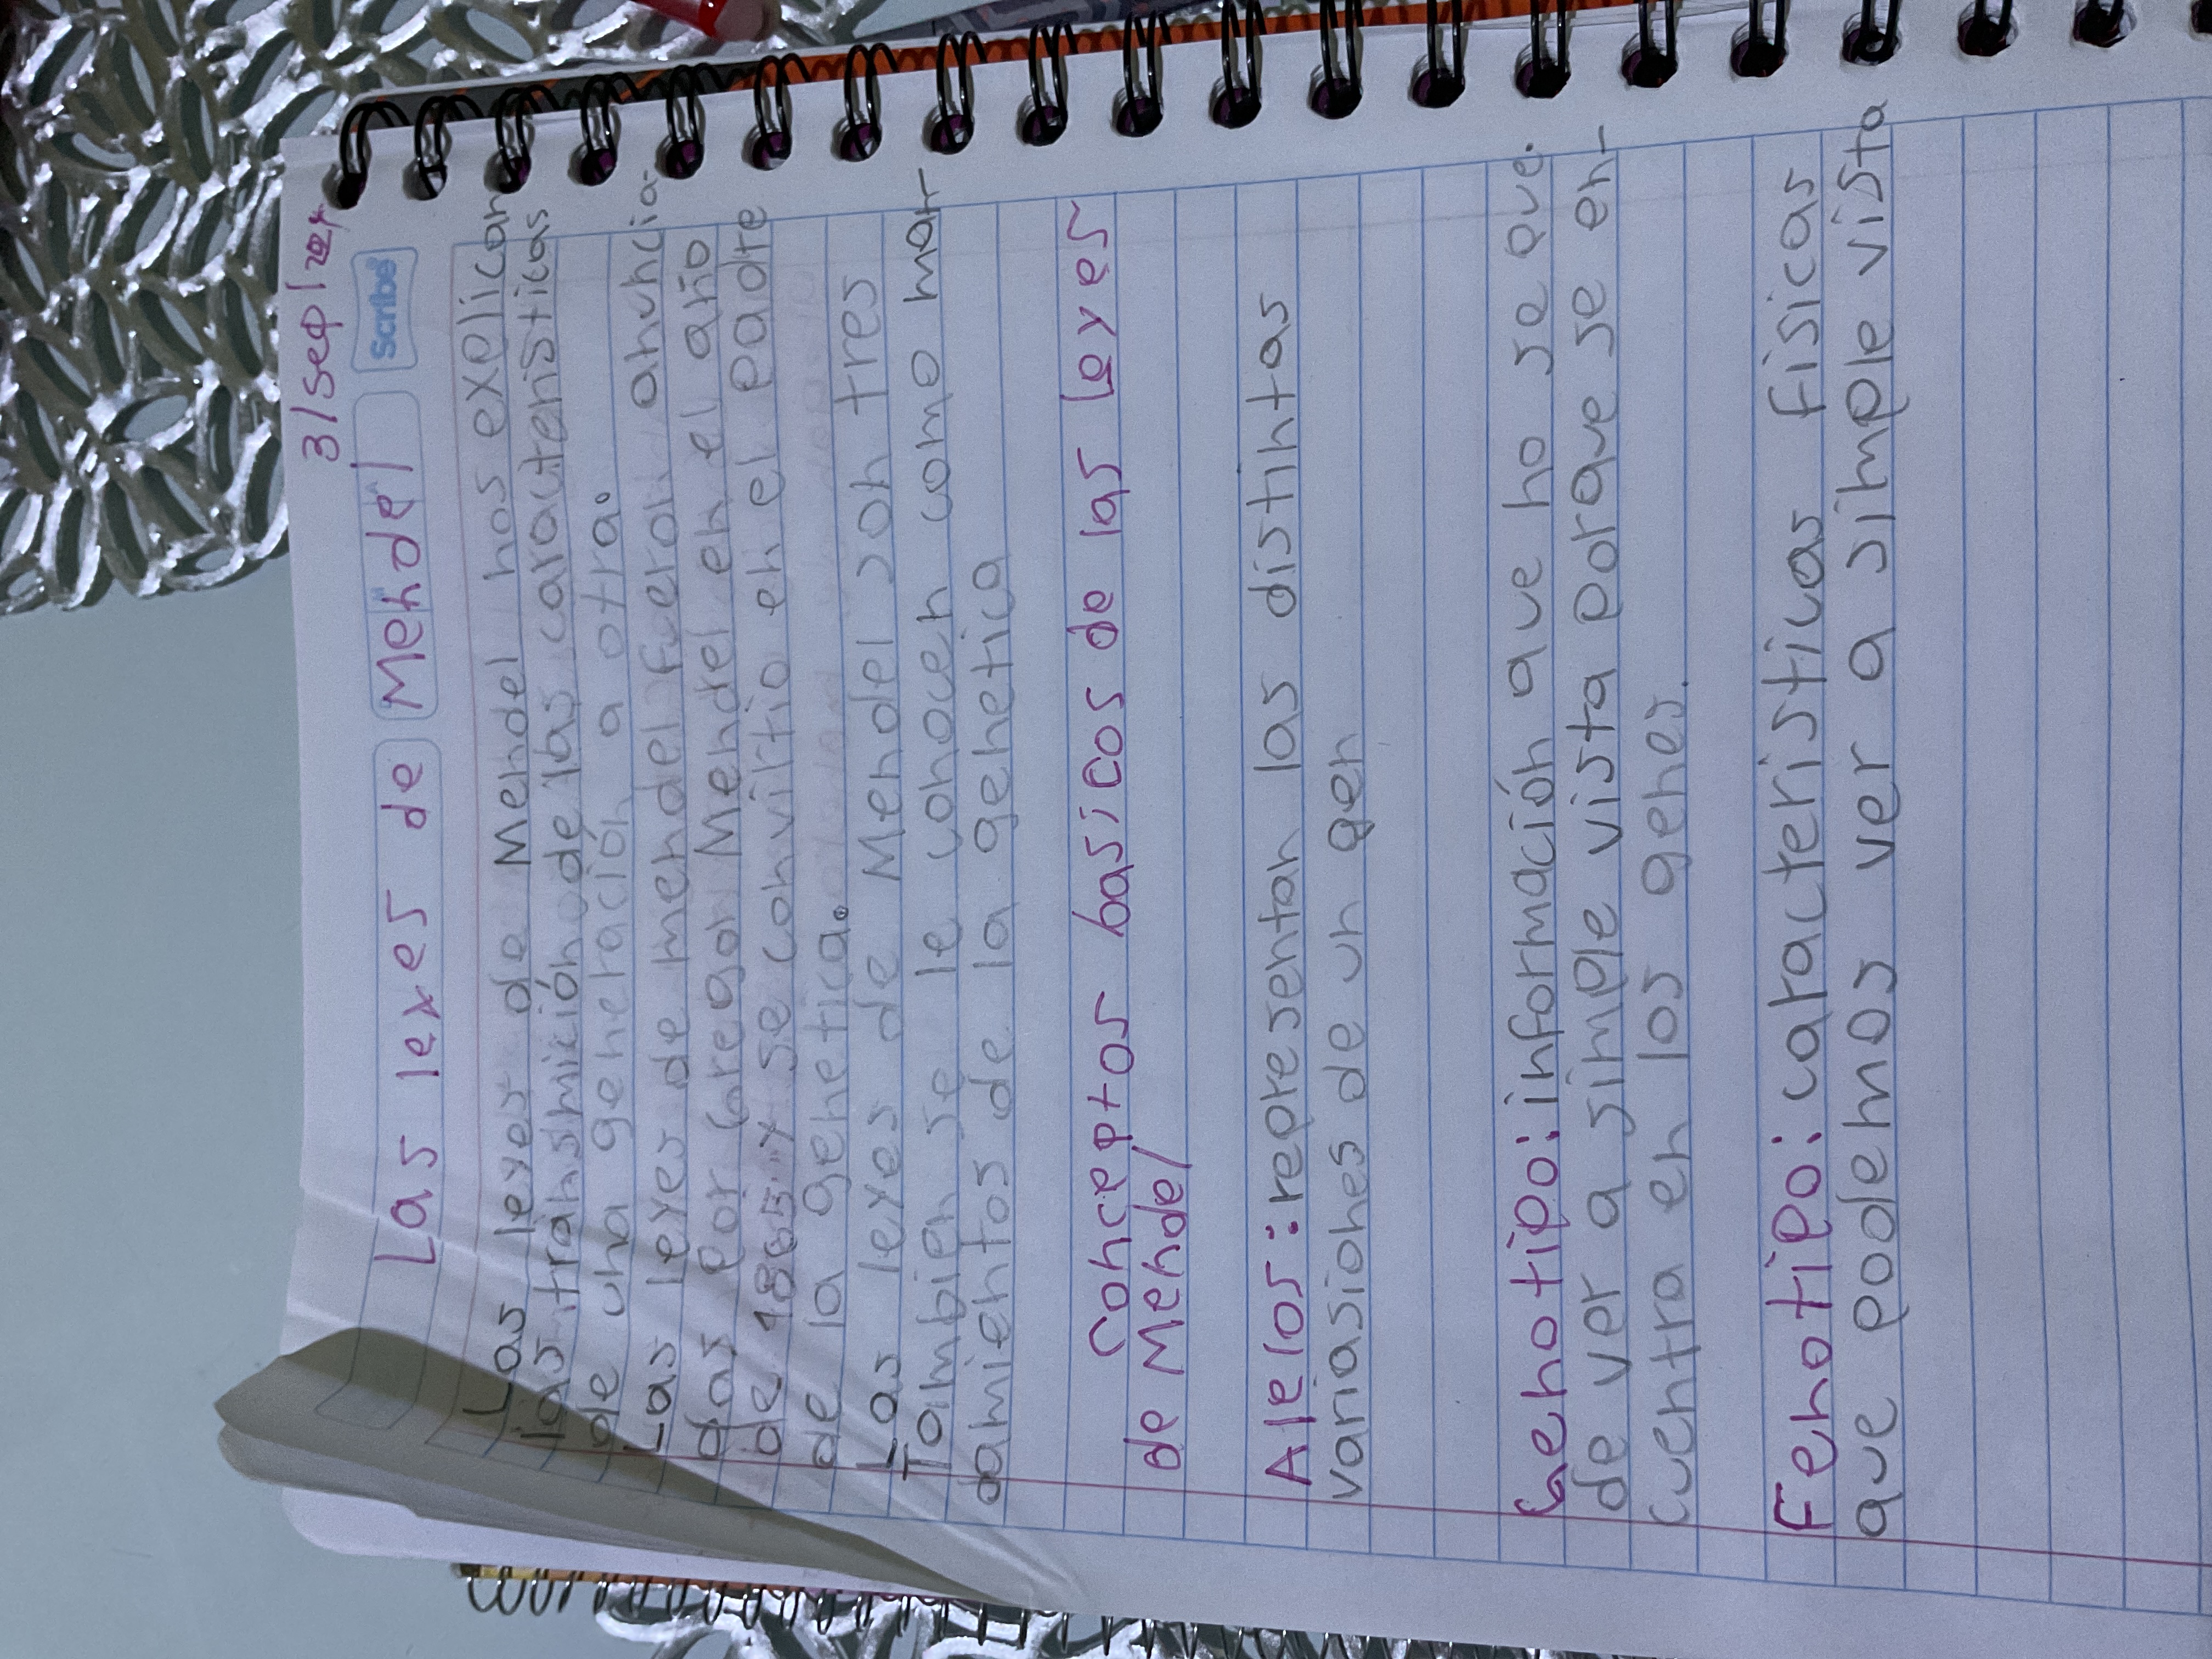 3/sep/24
Scribe
Las leyes de Mendel
Las leyes de Mendel nos explican
las trahsmición de las carauterísticas
de una generación a otra.
Las leyes de mendel fueron anuncia-
das por Gregor Mendel en el año
de 1865 y se convirtio en el padre
de la genetica.
Las leyes de Mendel son tres
Tambien se le conocen como man
damientos de la genetica
Conceptos basicos de las Leyes
de Mendel
Alelos: representan las distintas
variasiones de un gen
Genotipo: información que no se que
de ver a simple vista porque se en-
cuentra en los genes.
Fenotipo: características fisicas
que podemos ver a simple vista